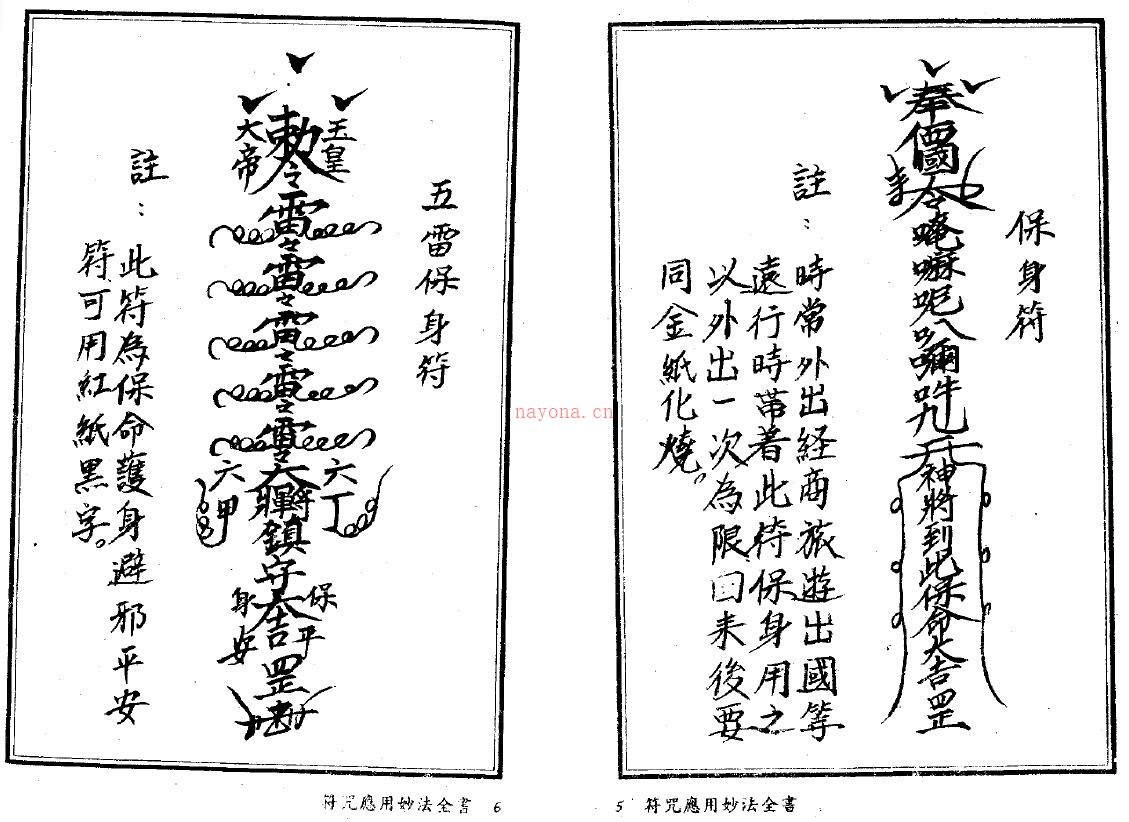 保身符
奉
令唵嘛呢八
神將到此保命大吉罡
註：
時常外出経商旅遊出國等
遠行時帶着此符保身用之
以外出一次為限回来後要
同金紙化燒。
5 符咒應用妙法全書
五雷保身符
玉皇
勅令雷雷雷雷雷
大帝
六丁
六甲
鎮守大吉罡
保平
身安
註：
此符為保命護身避邪平安
符可用紅紙黑字。
符咒應用妙法全書 6
nayona.cn